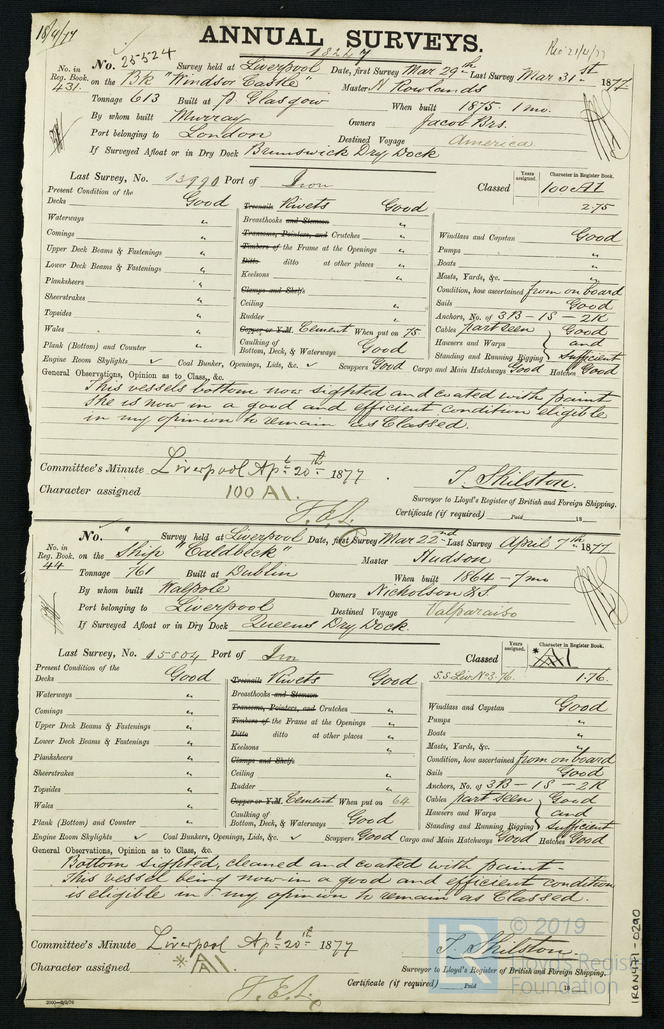 18/4/77
ANNUAL SURVEYS.
18247
Rec 21/4/77
No. in Reg. Book. 431.
No. 25524 Survey held at Liverpool Date, first Survey Mar 29th Last Survey Mar 31st 1877
on the Bk "Windsor Castle" Master H Rowlands
Tonnage 613 Built at P. Glasgow When built 1875. 1 mo.
By whom built Murray Owners Jacob Brs.
Port belonging to London Destined Voyage America
If Surveyed Afloat or in Dry Dock Brunswick Dry Dock
Last Survey, No. 13990 Port of Iron Classed Years assigned. Character in Register Book. 100 A1
2.75
Present Condition of the
Decks Good Treenails Rivets Good
Waterways " Breasthooks and Stemson " Windlass and Capstan Good
Comings " Transoms, Pointers, and Crutches " Pumps "
Upper Deck Beams & Fastenings " Timbers of the Frame at the Openings " Boats "
Lower Deck Beams & Fastenings " Ditto ditto at other places " Masts, Yards, &c. "
Planksheers " Keelsons " Condition, how ascertained from on board
Sheerstrakes " Clamps and Shelfs Sails Good
Topsides " Ceiling " Anchors, No. of 3B - 1S - 2K
Wales " Rudder " Cables part seen Good
Plank (Bottom) and Counter " Copper or Y.M. Cement When put on 75 Hawsers and Warps and
Caulking of Bottom, Deck, & Waterways Good Standing and Running Rigging sufficient
Engine Room Skylights ✓ Coal Bunker, Openings, Lids, &c. ✓ Scuppers Good Cargo and Main Hatchways Good Hatches Good
General Observations, Opinion as to Class, &c.
This vessels bottom now sighted and coated with paint
she is now in a good and efficient condition eligible
in my opinion to remain as Classed.
Committee's Minute Liverpool Apl 20th 1877
Character assigned 100 A1.
T. Shilston.
Surveyor to Lloyd's Register of British and Foreign Shipping.
Certificate (if required) Paid 18
No. in Reg. Book. 44
No. " Survey held at Liverpool Date, first Survey Mar 22nd Last Survey April 7th 1877
on the Ship "Caldbeck" Master Hudson
Tonnage 761 Built at Dublin When built 1864 - 7 mo
By whom built Walpole Owners Nicholson &S.
Port belonging to Liverpool Destined Voyage Valparaiso
If Surveyed Afloat or in Dry Dock Queens Dry Dock.
Last Survey, No. 15504 Port of Iron Classed Years assigned. Character in Register Book.
S.S. Liv No 3-76. 1.76.
Present Condition of the
Decks Good Treenails Rivets Good
Waterways " Breasthooks and Stemson " Windlass and Capstan Good
Comings " Transoms, Pointers, and Crutches " Pumps "
Upper Deck Beams & Fastenings " Timbers of the Frame at the Openings " Boats "
Lower Deck Beams & Fastenings " Ditto ditto at other places " Masts, Yards, &c. "
Planksheers " Keelsons " Condition, how ascertained from on board
Sheerstrakes " Clamps and Shelfs Sails Good
Topsides " Ceiling " Anchors, No. of 3B - 1S - 2K
Wales " Rudder " Cables part seen Good
Plank (Bottom) and Counter " Copper or Y.M. Cement When put on 64 Hawsers and Warps and
Caulking of Bottom, Deck, & Waterways Good Standing and Running Rigging sufficient
Engine Room Skylights ✓ Coal Bunkers, Openings, Lids, &c. ✓ Scuppers Good Cargo and Main Hatchways Good Hatches Good
General Observations, Opinion as to Class, &c.
Bottom sighted, cleaned and coated with paint -
This vessel being now in a good and efficient condition
is eligible in my opinion to remain as Classed.
Committee's Minute Liverpool Apl 20th 1877
Character assigned
T. Shilston.
Surveyor to Lloyd's Register of British and Foreign Shipping.
Certificate (if required) Paid 18
© 2019
Lloyd's Register
Foundation
IRON491-0290